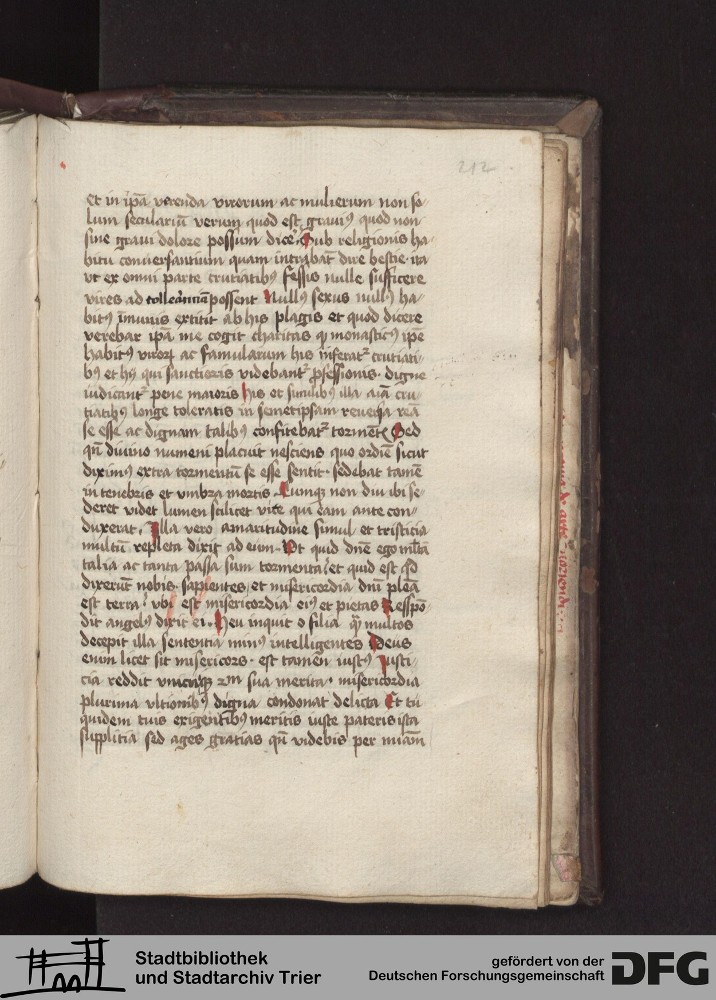 212
et in ip̄a verenda virorum ac mulierum non so
lum seculariū verum quod est grauiꝰ quod non
sine graui dolore possum dicē Sub religionis ha
bitu conuersantium quam intrabāt dire bestie ita
vt ex omni parte cruciatibꝰ fessis nulle sufficere
vires ad possent Nullꝰ sexus nullꝰ ha
bitꝰ īmunis extitit ab his plagis et quod dicere
verebar ip̄ā me cogit charitas qꝫ monasticꝰ ip̄e
habitꝰ virorꝝ ac famularum his inferat᷑ cruciati
bꝰ et hij qui sanctioris videbant᷑ ꝓfessionis digne
iudicant᷑ pene maioris his et similibꝰ illa aīa cru
ciatibꝰ longe toleratis in semetipsam reuersa rea
se esse ac dignam talibꝰ confitebat᷑ Sed
qn̄ diuino numeni placuit nesciens quo ordiē sicut
diximꝰ extra tormentū se esse sentit sedebat tamē
in tenebris et vmbra mortis Cumqꝫ non diu ibi se
deret videt lumen scilicet vite qui eam ante con
duxerat Illa vero amaritudine simul et tristicia
multū repleta dixit ad eum Vt quid dn̄e ego
talia ac tanta passa sum tormenta et quid est qd̄
dixerūt nobis sapientes et misericordia dnī plēa
est terra vbi est misericordia eiꝰ et pietas Respō
dit angelꝰ dixit ei Heu inquit o filia qꝫ multos
decepit illa sententia minꝰ intelligentes Deus
enim licet sit misericors est tamen iustꝰ Iusti
cia reddit vnicuiqꝫ sua merita misericordia
plurima vltionibꝰ digna condonat delicta Et tu
quidem tuis exigentibꝰ meritis iuste pateris ista
supplicia sed ages gratias qn̄ videbis per
Stadtbibliothek
und Stadtarchiv Trier
gefördert von der
Deutschen Forschungsgemeinschaft
DFG